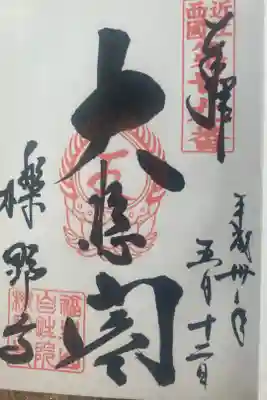 奉拝
近江
西國
大悲閣
平成卅年
五月十二日
櫟野寺
自性院